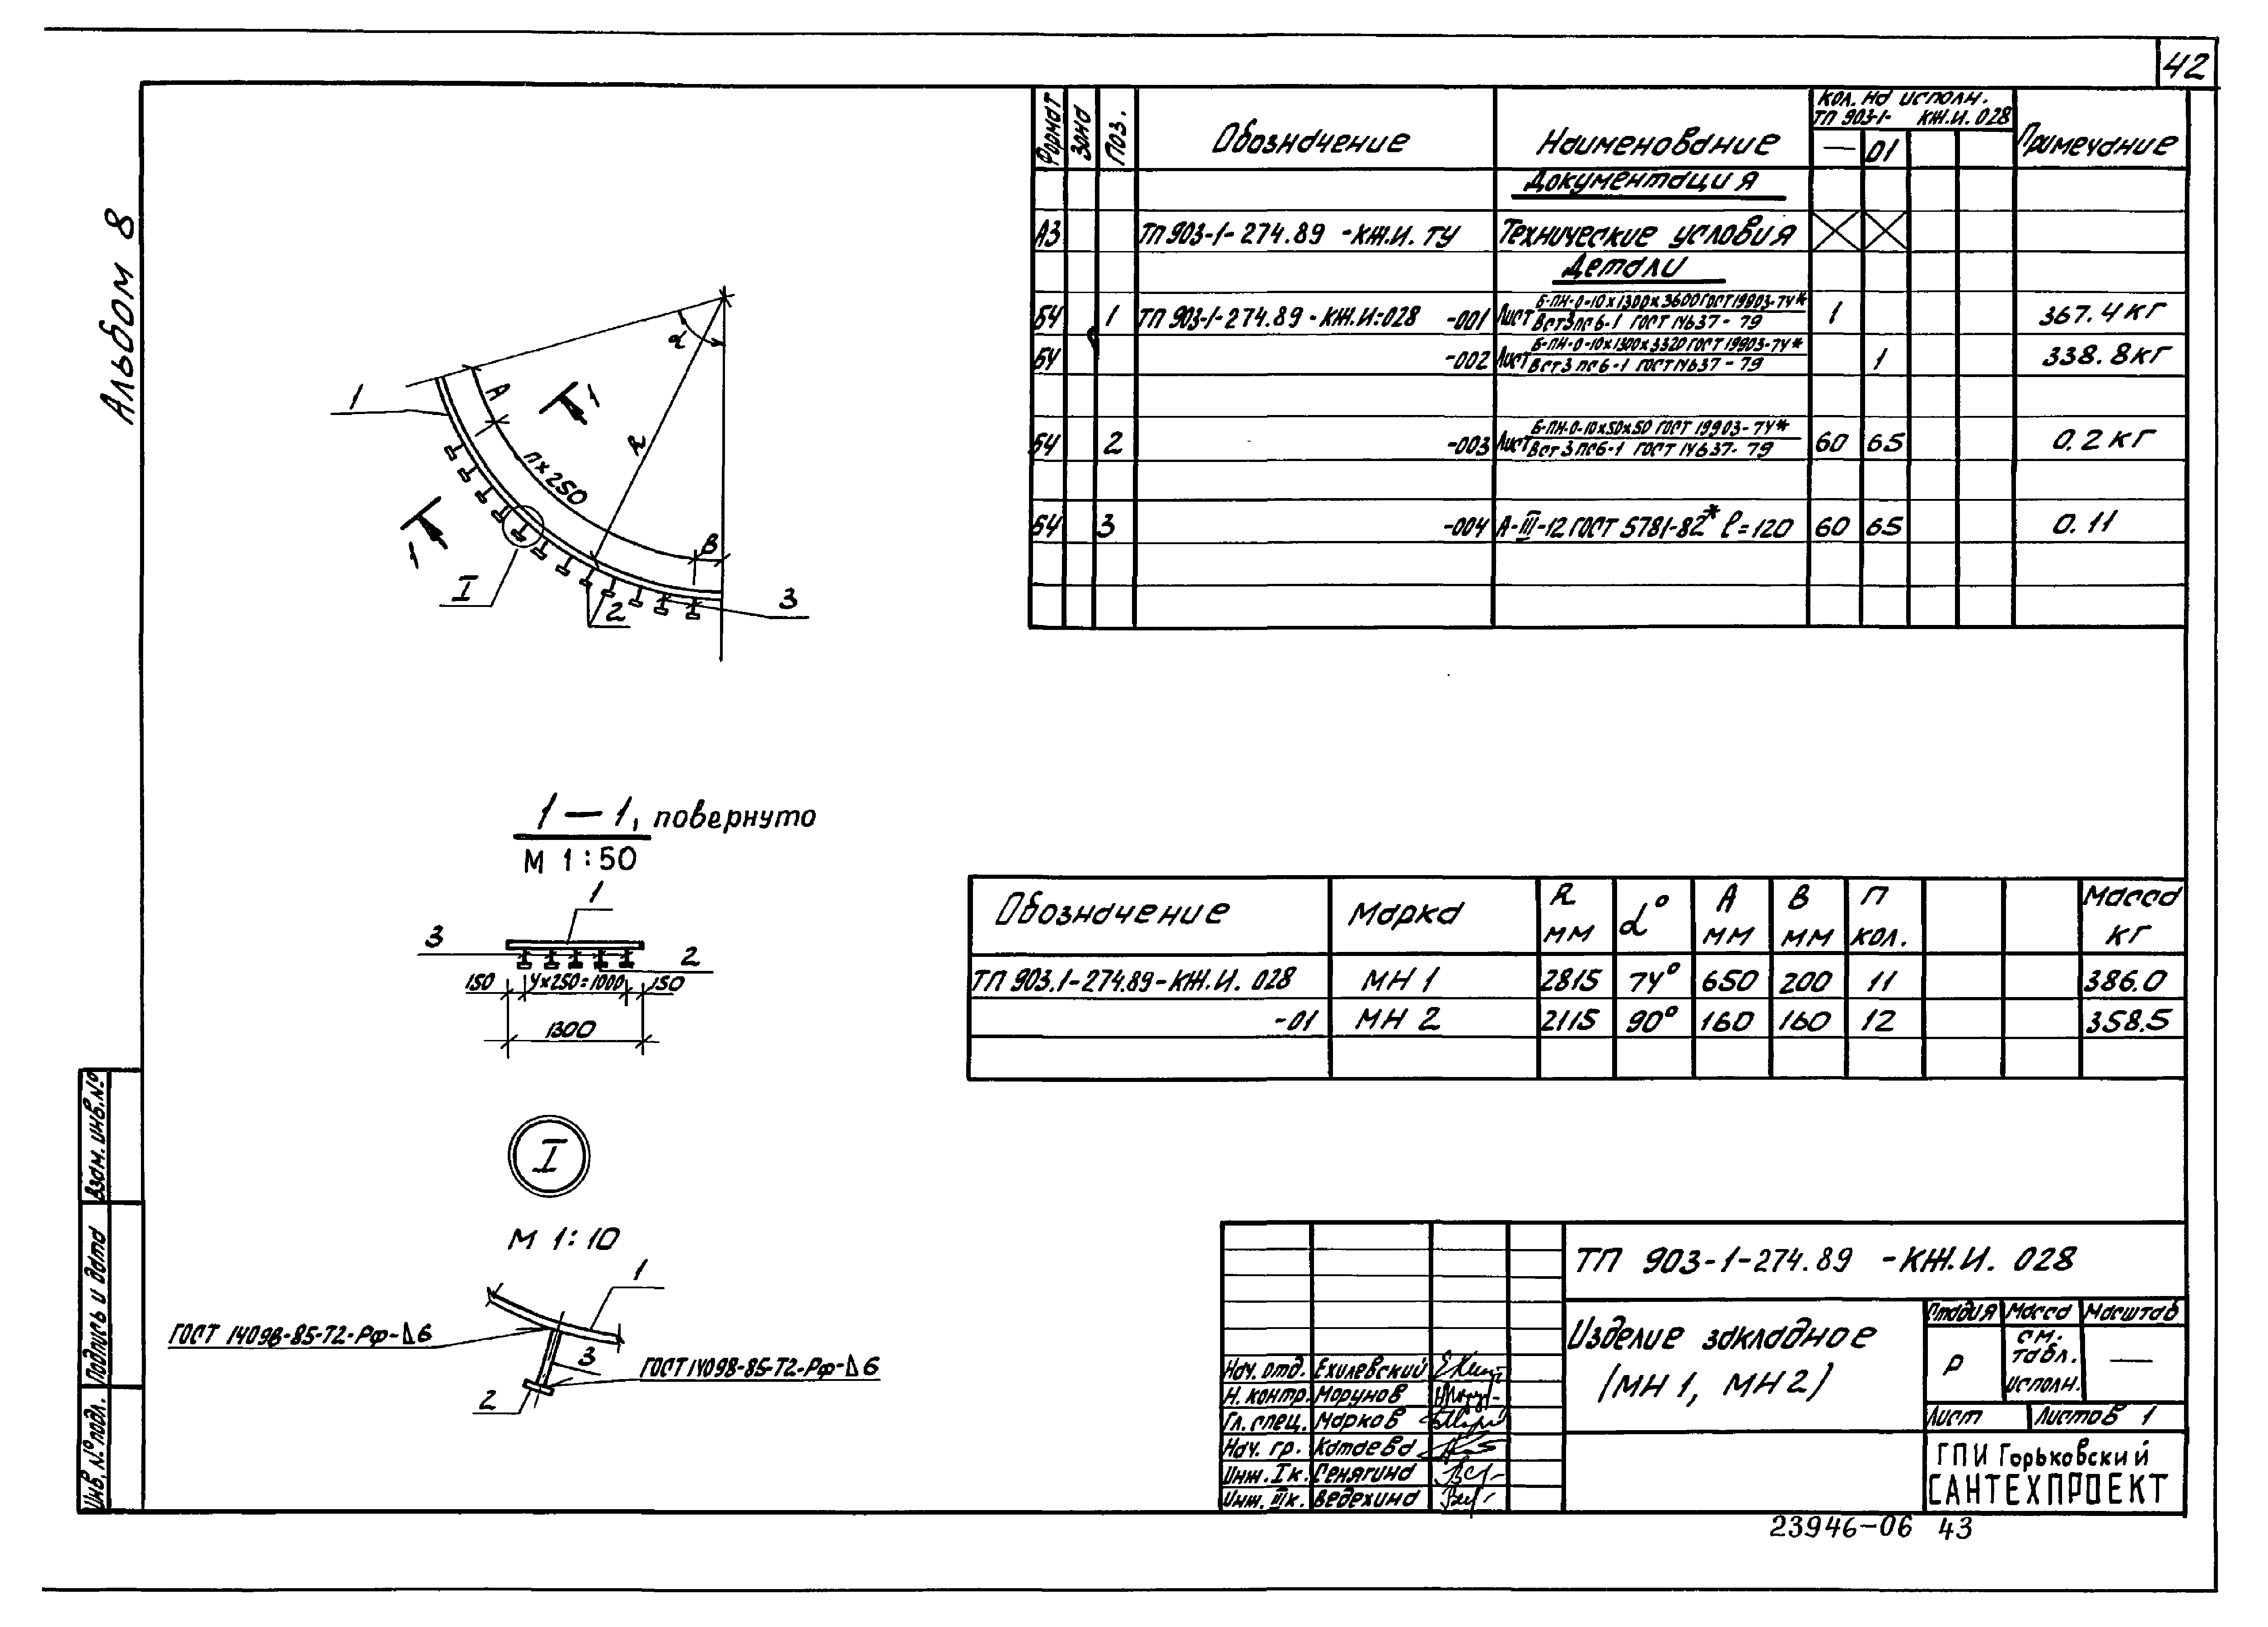 42
Альбом 8
Формат Зона Поз. Обозначение Наименование Кол. на исполн. ТП 903-1- КЖ.И.028 Примечание
— 01
Документация
А3 ТП 903-1-274.89 -КЖ.И. ТУ Технические условия
Детали
БЧ 1 ТП 903-1-274.89-КЖ.И.028 -001 Лист Б-ПН-0-10х1300х3600 ГОСТ 19903-74* 1 367.4 кг
ВСт3пс6-1 ГОСТ 14637-79
БЧ -002 Лист Б-ПН-0-10х1300х3320 ГОСТ 19903-74* 1 338.8 кг
ВСт3пс6-1 ГОСТ 14637-79
БЧ 2 -003 Лист Б-ПН-0-10х50х50 ГОСТ 19903-74* 60 65 0.2 кг
ВСт3пс6-1 ГОСТ 14637-79
БЧ 3 -004 А-III-12 ГОСТ 5781-82* ℓ=120 60 65 0.11
α
1
А
1
R
п×250
1
В
I
2
3
1—1, повернуто
М 1:50
1
3
2
150 4×250=1000 150
1300
I
М 1:10
1
ГОСТ 14098-85-Т2-Рф-Δ6
3
ГОСТ 14098-85-Т2-Рф-Δ6
2
Обозначение Марка R мм α° А мм В мм п кол. Масса кг
ТП 903.1-274.89-КЖ.И. 028 МН 1 2815 74° 650 200 11 386.0
-01 МН 2 2115 90° 160 160 12 358.5
Взам. инв.№
Подпись и дата
Инв.№ подл.
ТП 903-1-274.89 -КЖ.И. 028
Изделие закладное
(МН 1, МН 2)
Стадия Масса Масштаб
Р см. табл. исполн. —
Лист Листов 1
ГПИ Горьковский
САНТЕХПРОЕКТ
Нач. отд. Ехилевский
Н. контр. Морунов
Гл. спец. Марков
Нач. гр. Катаева
Инж. I к. Сенягина
Инж. III к. Ведехина
23946-06 43